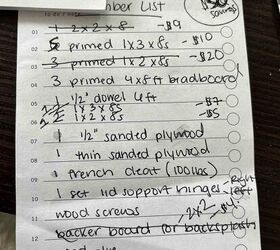 mber List
150
savings
01 1 2x2x8 -$9
02 5 primed 1x3x8s -$10
03 3 primed 1x2x8s -$20
04 3 primed 4x8ft beadboard
05 1 1/2" dowel 4ft
06 1x3x8s -$7
1x2x8s -$5
07 1 1/2" sanded plywood
08 1 thin sanded plywood
09 1 french cleat (100lbs)
10 1 set lid support hinges Right Left
11 wood screws
2x2 -$4
12 backer board for backsplash